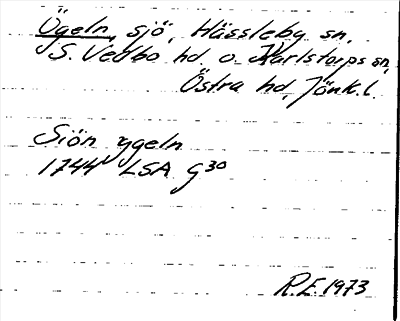 Ögeln, sjö, Hässleby sn,
S. Vedbo hd. o. Karlstorps sn,
Östra hd, Jönk.l.
Siön ygeln
1744 LSA G30
R.E. 1973